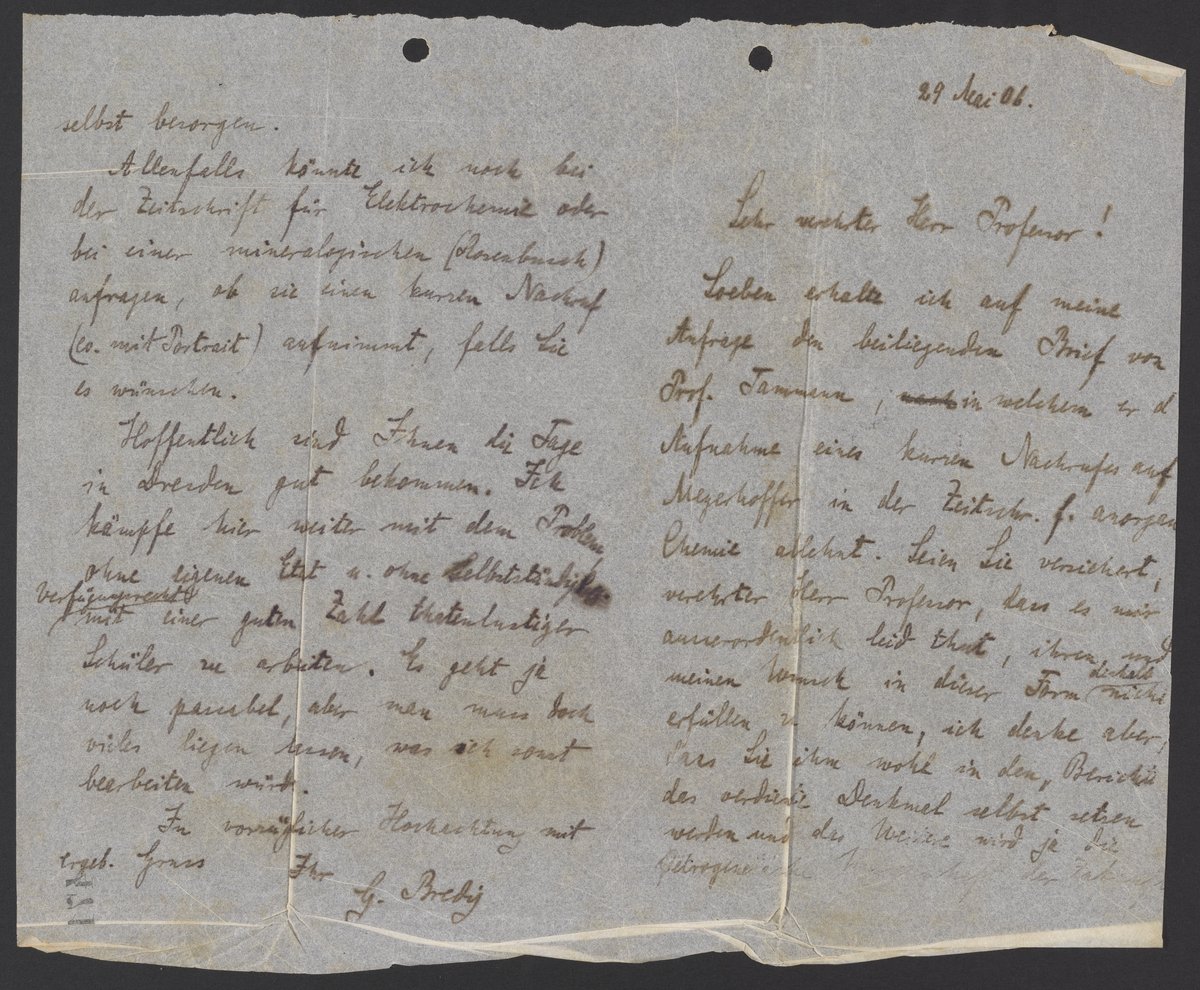 29 Mai 06.
Sehr verehrter Herr Professor!
Soeben erhalte ich auf meine
Anfrage den beiliegenden Brief von
Prof. Tammann, in welchem er d
Aufnahme eines kurzen Nachrufes auf
Meyerhoffer in der Zeitschr. f. anorgan
Chemie ablehnt. Seien Sie versichert,
verehrter Herr Professor, dass es mir
ausserordentlich leid thut, ihren und
meinen Wunsch in dieser Form deshalb nicht
erfüllen zu können, ich denke aber,
dass Sie ihm wohl in den „Berichte
das verdiente Denkmal selbst setzen
werden und das Weitere wird ja die
der
selbst besorgen.
Allenfalls könnte ich noch bei
der Zeitschrift für Elektrochemie oder
bei einer mineralogischen (Rosenbusch)
anfragen, ob sie einen kurzen Nachruf
(ev. mit Portrait) aufnimmt, falls Sie
es wünschen.
Hoffentlich sind Ihnen die Tage
in Dresden gut bekommen. Ich
kämpfe hier weiter mit dem Problem
ohne eigenen Etat u. ohne Selbstständig
Verfügungsrecht
mit einer guten Zahl thatenlustiger
Schüler zu arbeiten. Es geht ja
noch passabel, aber man muss doch
vieles liegen lassen, was ich sonst
bearbeiten würde.
In vorzüglicher Hochachtung mit
ergeb. Gruss
Ihr
G. Bredig